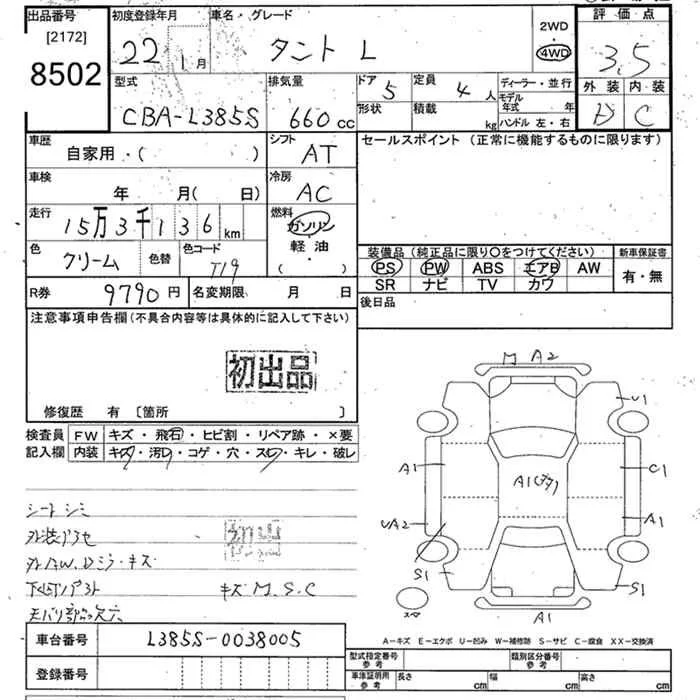 出品番号 初度登録年月 車名・グレード 2WD・4WD 評価点
[2172] 8502 22 1月 タント L 3.5
外装 内装
D C
型式 CBA-L385S 排気量 660cc ドア 5 定員 4人 ディーラー・並行
形状 積載 kg モデル年式 年
ハンドル 左・右
車歴 自家用・( ) シフト AT セールスポイント (正常に機能するものに限ります)
車検 年 月(日) 冷房 AC
走行 15万3千136km 燃料 ガソリン・軽油・( )
色 クリーム 色替 色コード T19
装備品 (純正品に限り○をつけてください) 新車保証書
PS PW ABS エアB AW 有・無
SR ナビ TV カワ
R券 9790円 名変期限 月 日 後日品
注意事項申告欄 (不具合内容等は具体的に記入して下さい)
初出品
修復歴 有 [箇所 ]
検査員 FW キズ・飛石・ヒビ割・リペア跡・×要
記入欄 内装 キズ・汚レ・コゲ・穴・スレ・キレ・破レ
M A2
U1
A1 A1 C1
UA2 A1
S1 S1
A1
シートシミ
初出
キズ M.S.C
A-キズ E-エクボ U-凹み W-補修跡 S-サビ C-腐食 XX-交換済
車台番号 L385S-0038005
型式指定番号 参考 類別区分番号 参考
登録番号 車庫証明用 参考 長さ cm 幅 cm 高さ cm